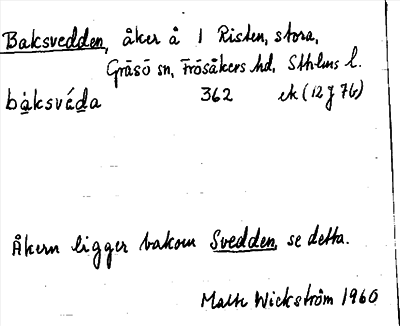 Baksvedden, åker å 1 Risten, stora,
Gräsö sn, Frösåkers hd, Sthlms l.
båksvéda 362 ek (12 J 7b)
Åkern ligger bakom Svedden, se detta.
Math Wickström 1960